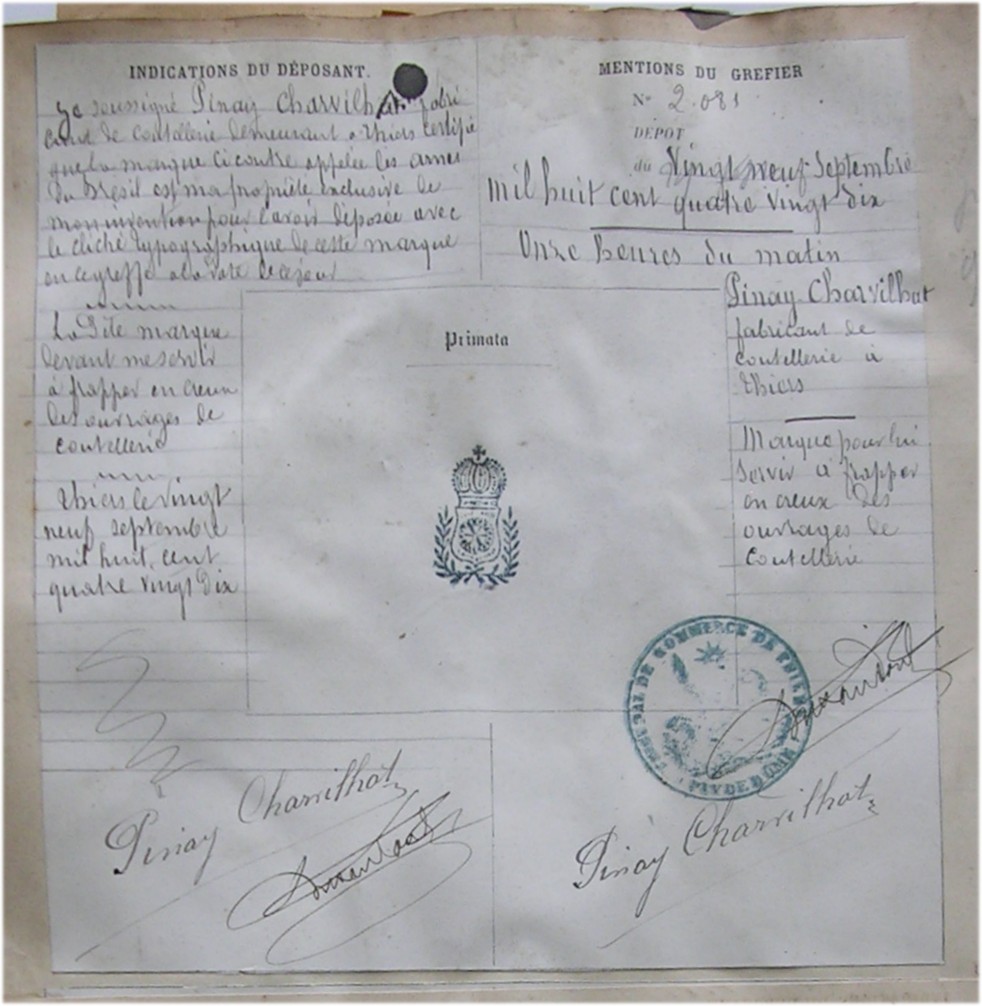 INDICATIONS DU DÉPOSANT.
Je soussigné Pinay Charvilhat fabri
cant de coutellerie demeurant a thiers certifie
que la marque ci contre appelée les armes
du Bresil est ma propriète exclusive de
mon invention pour l'avoir déposée avec
le cliché typographique de cette marque
au greffe a la date de ce jour
La dite marque
devant me servir
à frapper en creux
des ouvrages de
coutellerie
thiers le vingt
neuf septembre
mil huit cent
quatre vingt dix
Pinay Charvilhat
MENTIONS DU GREFIER
N° 2.081
DÉPOT
du Vingt neuf Septembre
mil huit cent quatre vingt dix
Onze heures du matin
Pinay Charvilhat
fabricant de
coutellerie à
thiers
Marque pour lui
servir à frapper
en creux des
ouvrages de
Coutellerie
Primata
TRIBUNAL DE COMMERCE DE THIERS
PUY DE DOME
Pinay Charvilhat